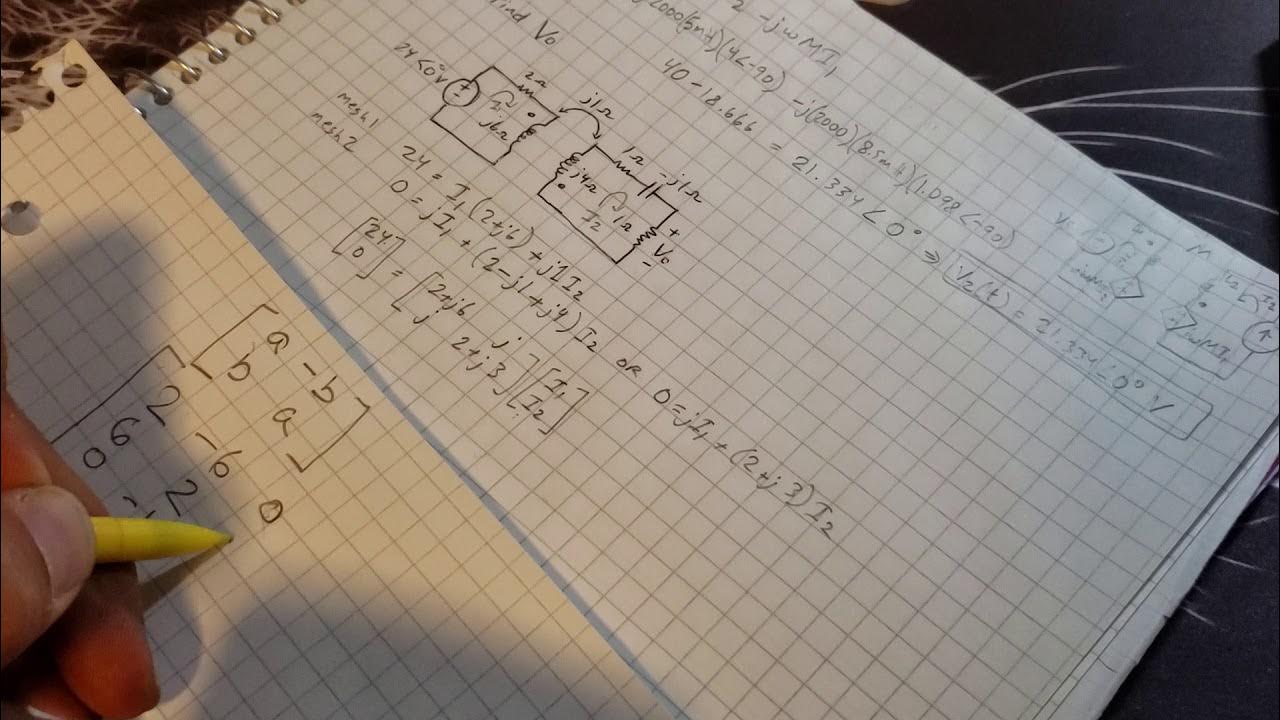 2 - jωMI₁
2000(5mH)(4<-90) - j(2000)(8.5mH)(1.098<-90)
40 - 18.666 = 21.334<0° ⇒ V₂(t) = 21.334<0° V
find V₀
24<0°V
2Ω
I₁
j6Ω
j1Ω
1Ω
-j1Ω
j4Ω
I₂
1Ω
+
V₀
-
mesh1 24 = I₁(2+j6) + j1I₂
mesh2 0 = jI₁ + (2-j1+j4)I₂ OR 0 = jI₁ + (2+j3)I₂
[24 0] = [2+j6 j j 2+j3][I₁ I₂]
M
1Ω
I₂
[a -b
b a]
2 -6 0
6 2
0